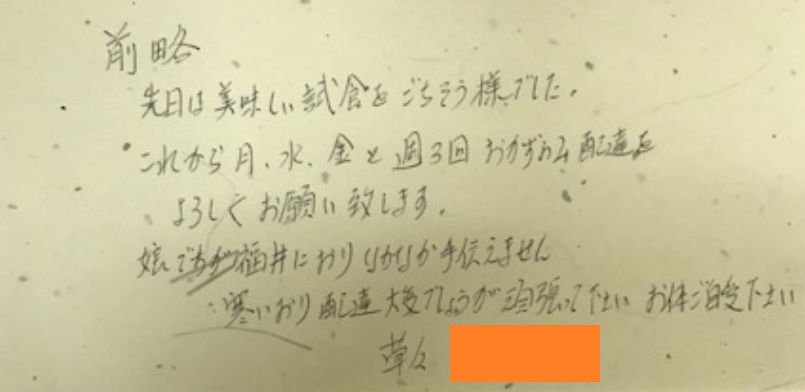 前略
先日は美味しい試食をごちそう様でした。
これから月、水、金と週3回おかずのみ配達を
よろしくお願い致します。
娘ですが福井におりなかなか手伝えません
寒いおり配達大変でしょうが頑張って下さい お体ご自愛下さい
草々